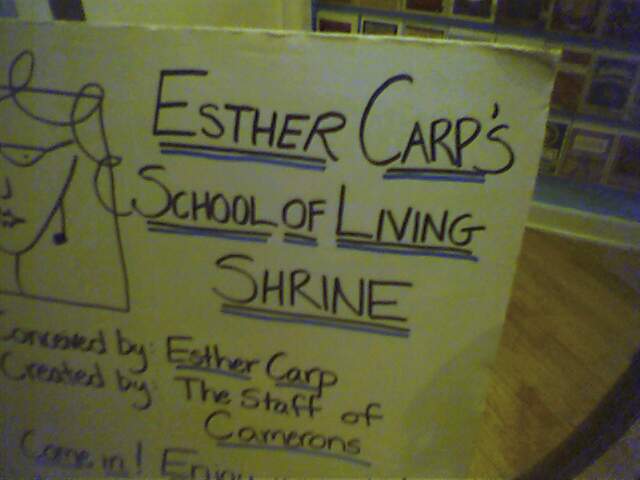 ESTHER CARP'S
SCHOOL OF LIVING
SHRINE
Conceived by: Esther Carp
Created by: The Staff of
Camerons
Come in! Enjoy